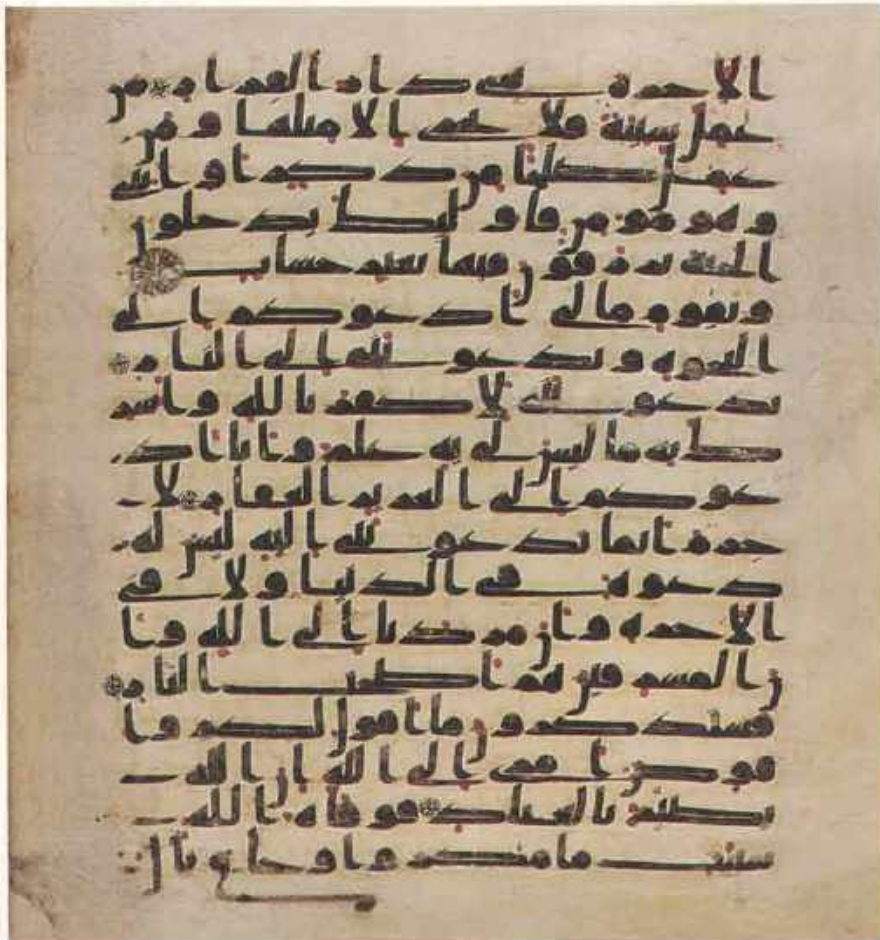 الاخرة هي دار القرار من
عمل سيئة فلا يجزى الا مثلها ومن
عمل صلحا من ذكر او انثى
وهو مؤمن فاولئك يدخلون
الجنة يرزقون فيها بغير حساب
ويقوم ما لي ادعوكم الى
النجوة وتدعونني الى النار
تدعونني لاكفر بالله واشر
ك به ما ليس لي به علم وانا اد
عوكم الى العزيز الغفار لا
جرم انما تدعونني اليه ليس له
دعوة في الدنيا ولا في
الاخرة وان مردنا الى الله وا
ن المسرفين هم اصحب النار
فستذكرون ما اقول لكم وا
فوض امري الى الله ان الله
بصير بالعباد فوقاه الله
سيئت ما مكروا وحاق بال